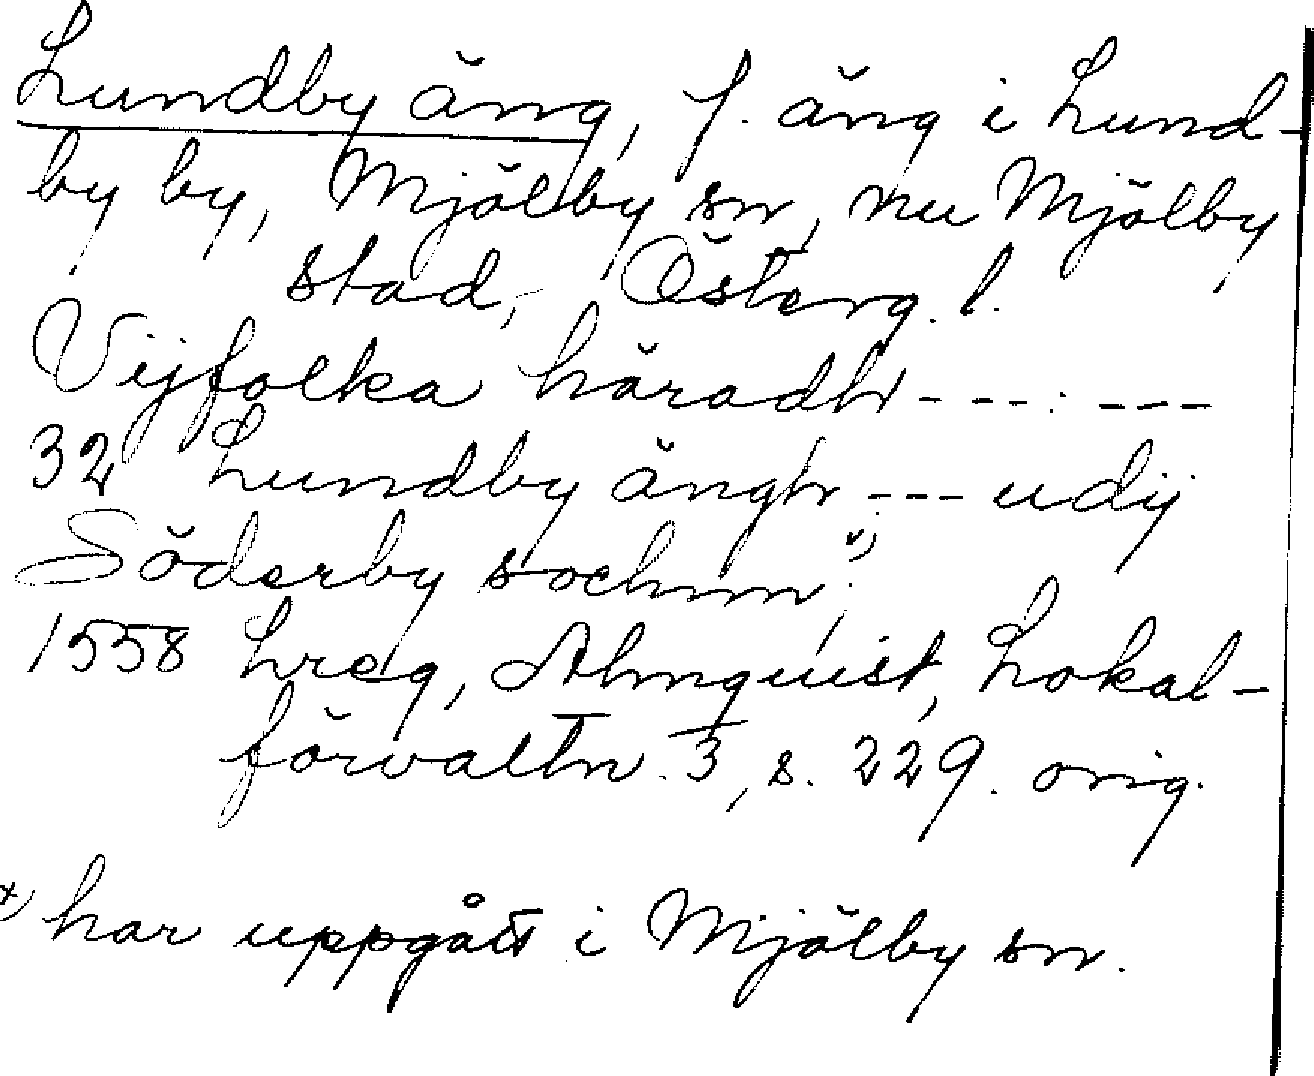 Lundby äng, f. äng i Lund-
by by, Mjölby sn, nu Mjölby
stad, Österg. l.
Vijfolka häradh - - - - : - - -
32 Lundby ängh - - - udij
Söderby sochnn x)
1558 Lreg, Almquist, Lokal-
förvaltn. 3, s. 229. orig.
x) har uppgått i Mjölby sn.